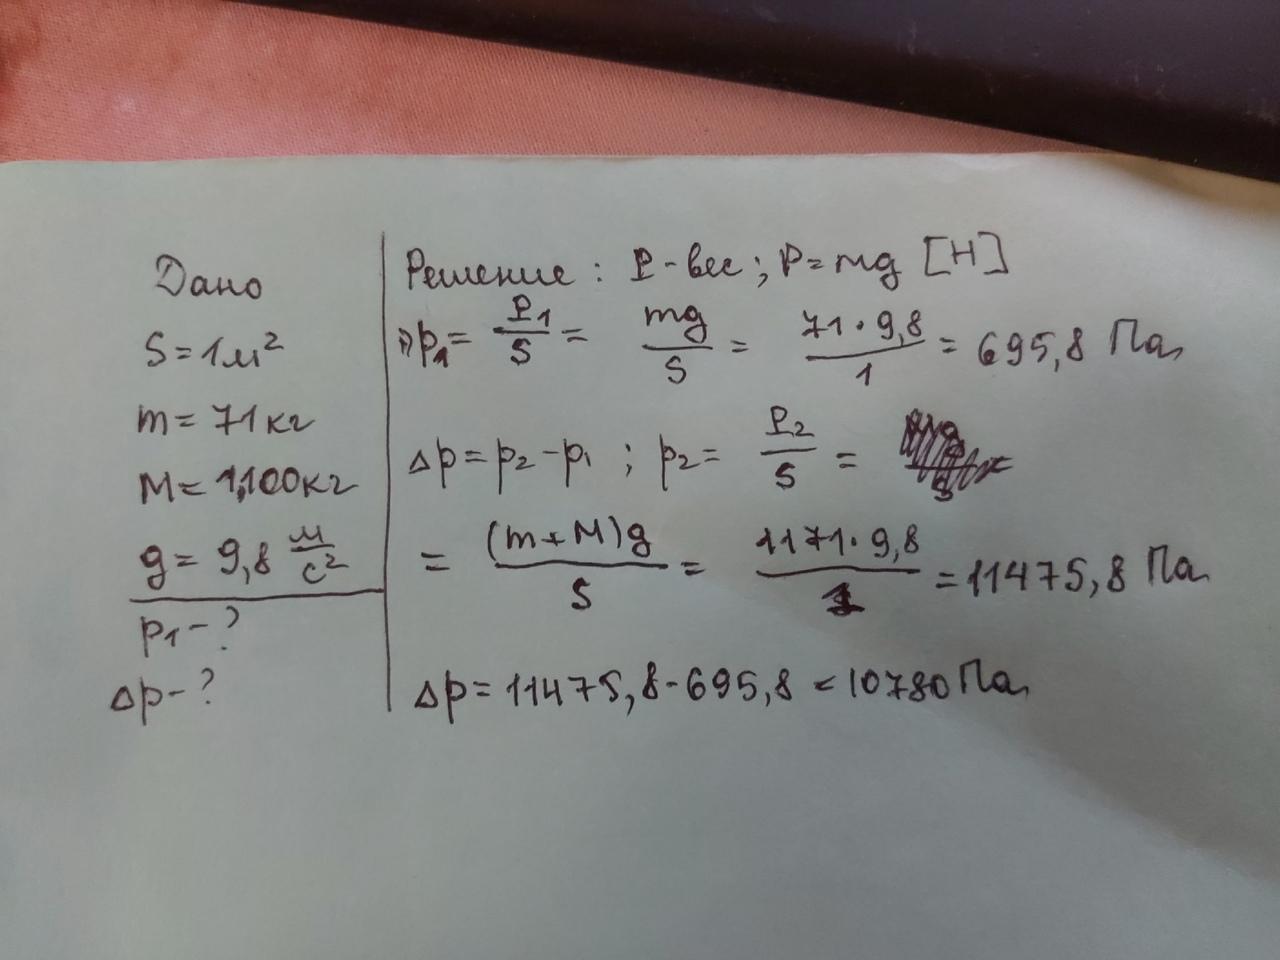 Дано
S = 1м²
m = 71кг
M = 1,100кг
g = 9,8 м/с²
p₁ - ?
Δp - ?
Решение : P - вес ; P = mg [Н]
1) p₁ = P₁/S = mg/S = 71 · 9,8/1 = 695,8 Па
Δp = p₂ - p₁ ; p₂ = P₂/S =
= (m + M)g/S = 1171 · 9,8/1 = 11475,8 Па
Δp = 11475,8 - 695,8 = 10780 Па